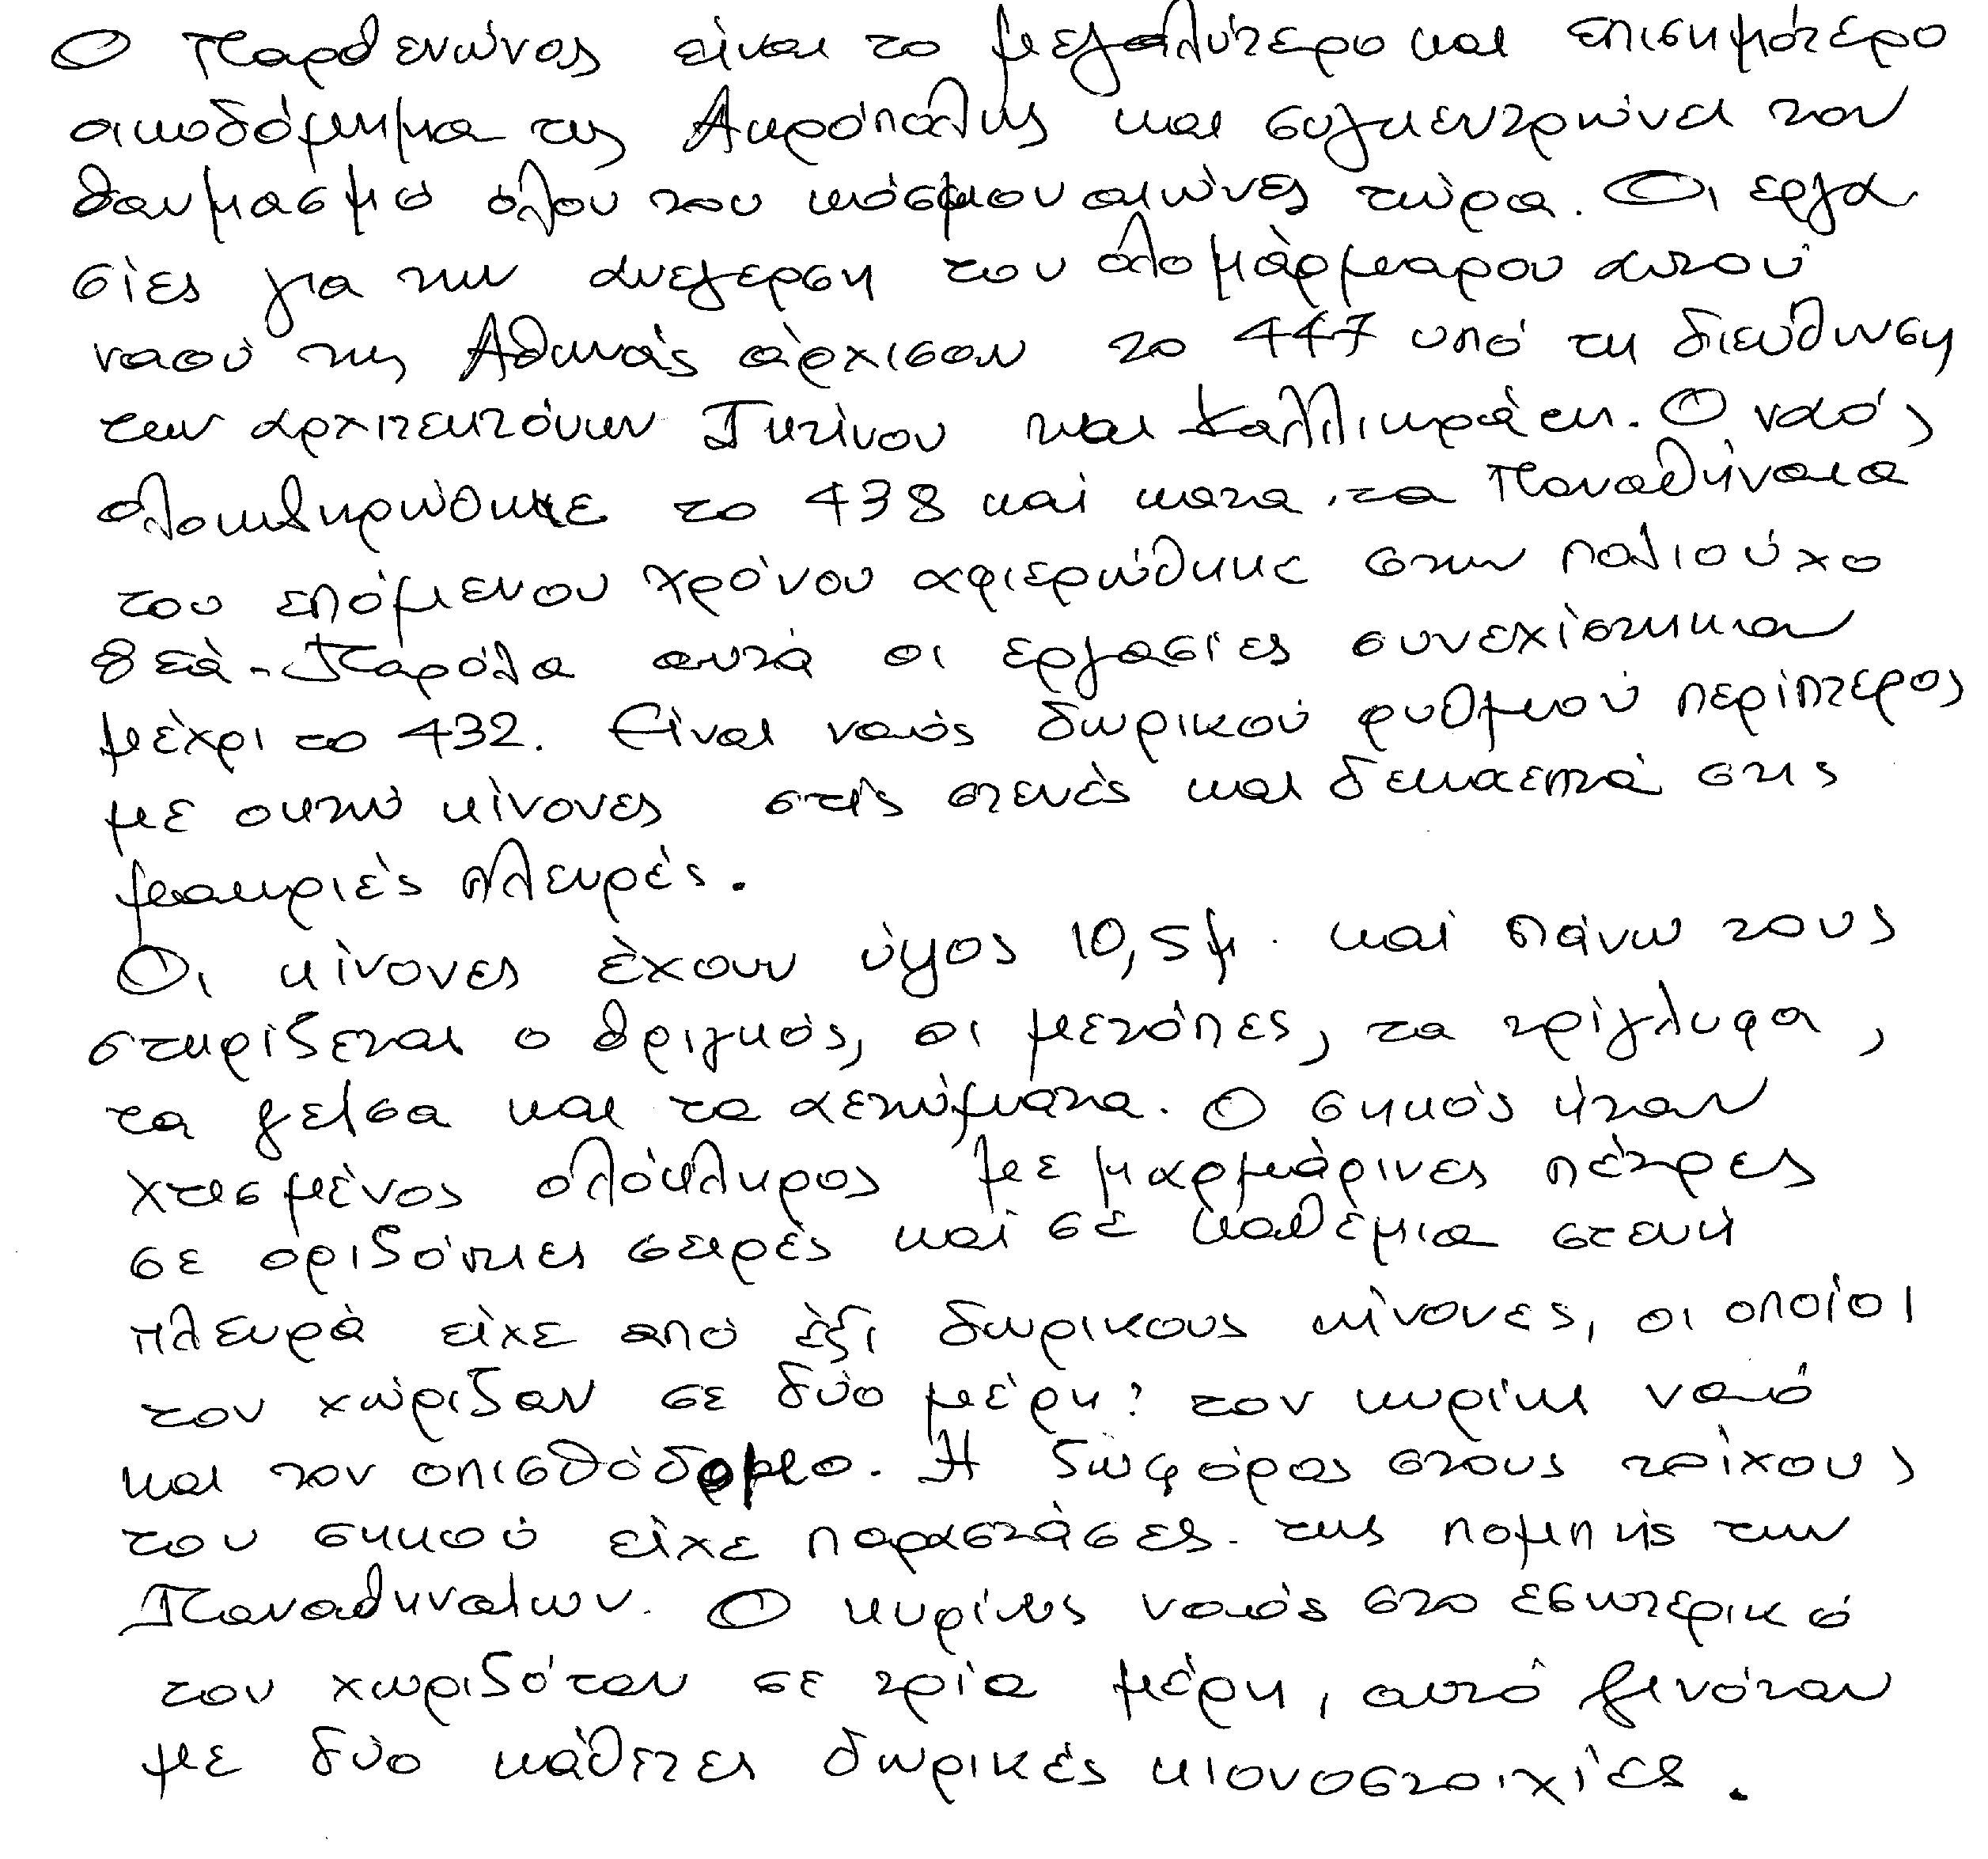 Ο Παρθενώνας είναι το μεγαλύτερο και επισημότερο
οικοδόμημα της Ακρόπολης και συγκεντρώνει τον
θαυμασμό όλου του κόσμου αιώνες τώρα. Οι εργα
σίες για την ανεγερση του ολομάρμαρου αυτού
ναού της Αθηνάς άρχισαν το 447 υπό τη διεύθυνση
των αρχιτεκτόνων Ικτίνου και Καλλικράτη. Ο ναός
ολοκληρώθηκε το 438 καί κατα τα Παναθήναια
του επόμενου χρόνου αφιερώθηκε στην πολιούχο
θεά. Παρόλα αυτά οι εργασίες συνεχίστηκαν
μέχρι το 432. Είναι ναός δωρικού ρυθμού περίπτερος
με οκτώ κίνονες στίς στενές και δεκαεπτά στις
μακριές πλευρές.
Οι κίνονες έχουν ύψος 10,5μ. καί πάνω τους
στηρίζεται ο θριγκός, οι μετόπες, τα τρίγλυφα,
τα γείσα και τα αετώματα. Ο σηκός ήταν
χτισμένος ολόκληρος με μαρμάρινες πέτρες
σε οριζόντιες σειρές καί σε καθέμια στενή
πλευρά είχε από έξι δωρικους κίνονες, οι οποίοι
τον χώριζαν σε δύο μέρη: τον κυρίως ναό
και τον οπισθόδομο. Η ζωφόρος στους τοίχους
του σηκού είχε παραστάσες της πομπής των
Παναθηναίων. Ο κυρίως ναός στο εσωτερικό
του χωριζόταν σε τρία μέρη, αυτό γινόταν
με δύο κάθετες δωρικές κιονοστοιχίες.